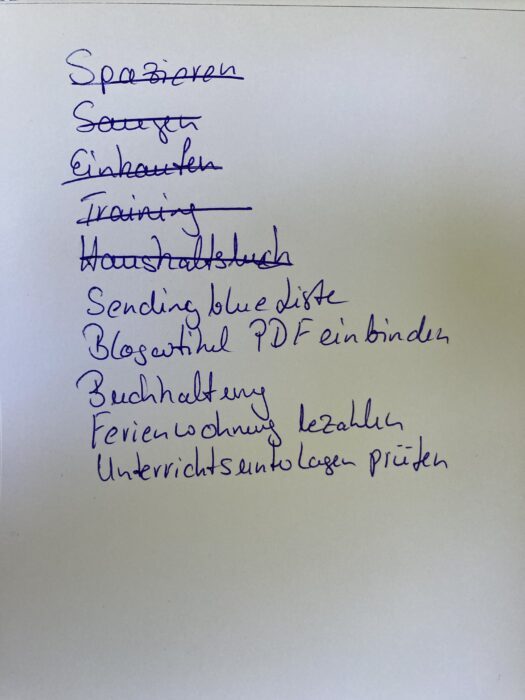 Spazieren
Saugen
Einkaufen
Training
Haushaltsbuch
Sendingblue Liste
Blogartikel PDF einbinden
Buchhaltung
Ferienwohnung bezahlen
Unterrichtsunterlagen prüfen